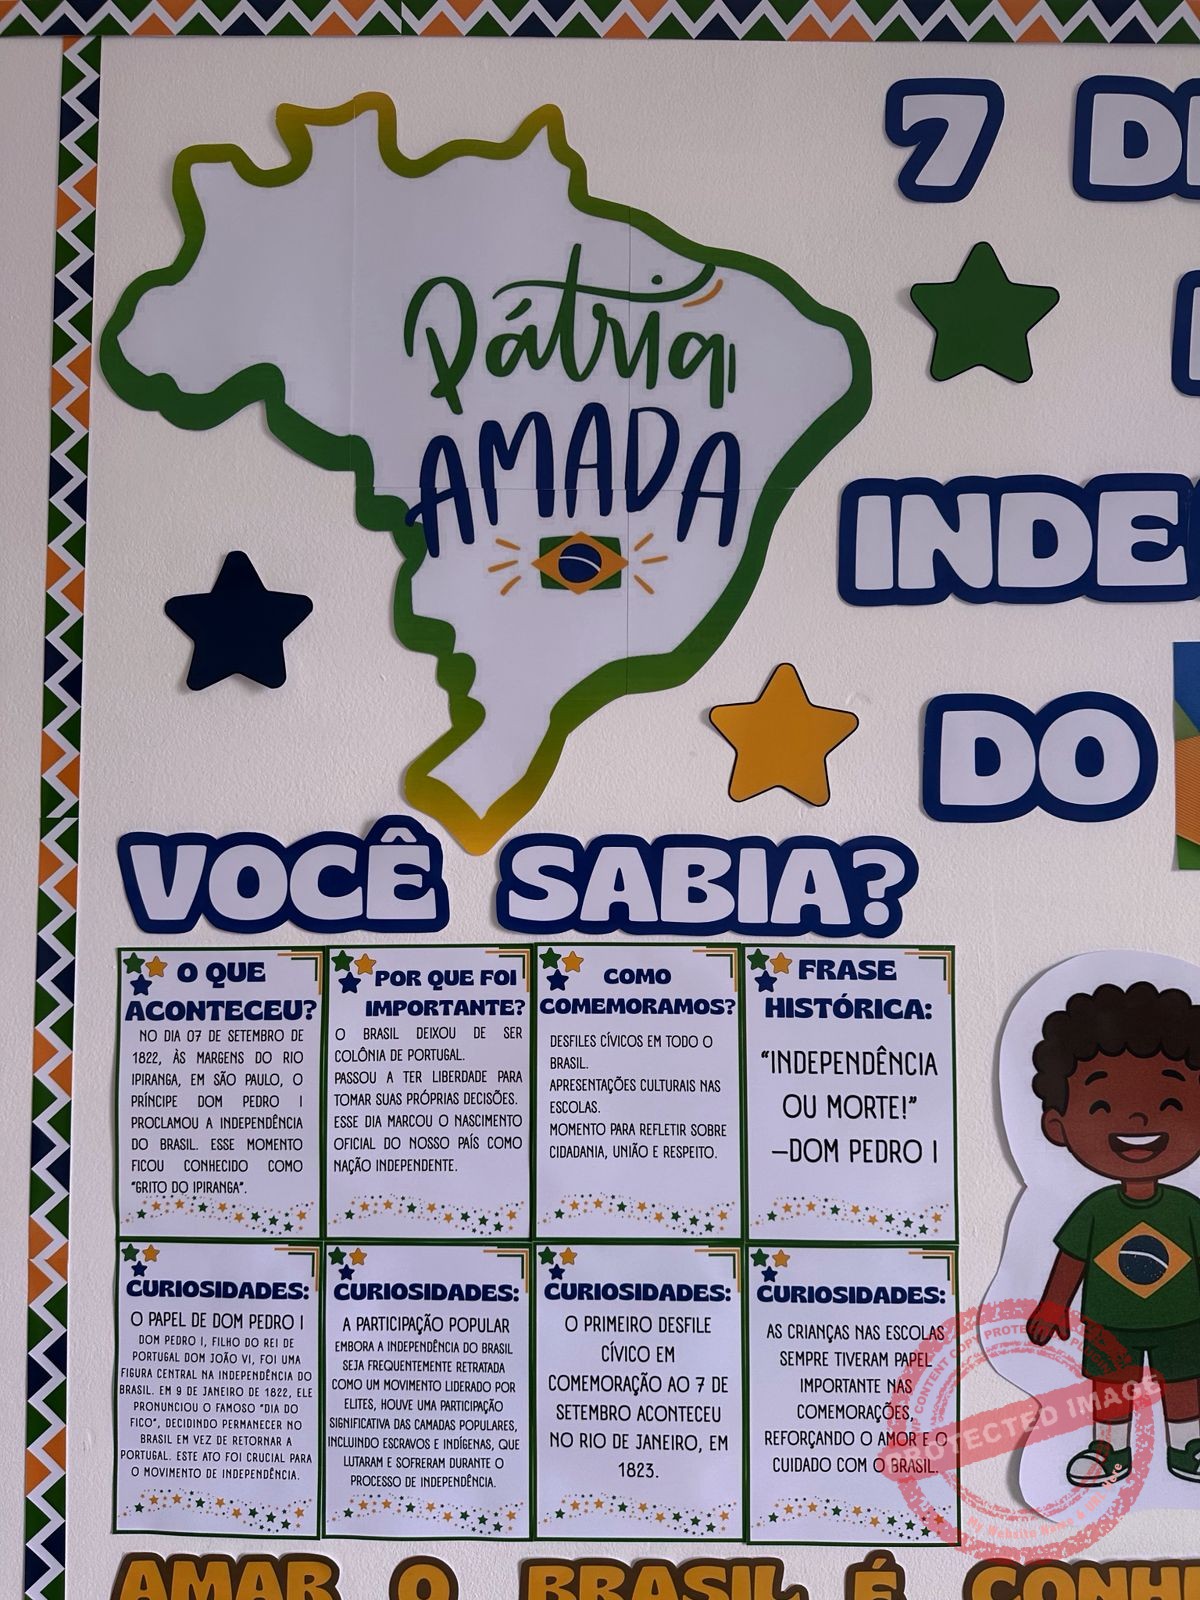 7 DE
Pátria
AMADA
INDE
DO
VOCÊ SABIA?
O QUE
ACONTECEU?
NO DIA 07 DE SETEMBRO DE
1822, ÀS MARGENS DO RIO
IPIRANGA, EM SÃO PAULO, O
PRÍNCIPE DOM PEDRO I
PROCLAMOU A INDEPENDÊNCIA
DO BRASIL. ESSE MOMENTO
FICOU CONHECIDO COMO
"GRITO DO IPIRANGA".
POR QUE FOI
IMPORTANTE?
O BRASIL DEIXOU DE SER
COLÔNIA DE PORTUGAL.
PASSOU A TER LIBERDADE PARA
TOMAR SUAS PRÓPRIAS DECISÕES.
ESSE DIA MARCOU O NASCIMENTO
OFICIAL DO NOSSO PAÍS COMO
NAÇÃO INDEPENDENTE.
COMO
COMEMORAMOS?
DESFILES CÍVICOS EM TODO O
BRASIL.
APRESENTAÇÕES CULTURAIS NAS
ESCOLAS.
MOMENTO PARA REFLETIR SOBRE
CIDADANIA, UNIÃO E RESPEITO.
FRASE
HISTÓRICA:
"INDEPENDÊNCIA
OU MORTE!"
–DOM PEDRO I
CURIOSIDADES:
O PAPEL DE DOM PEDRO I
DOM PEDRO I, FILHO DO REI DE
PORTUGAL DOM JOÃO VI, FOI UMA
FIGURA CENTRAL NA INDEPENDÊNCIA DO
BRASIL. EM 9 DE JANEIRO DE 1822, ELE
PRONUNCIOU O FAMOSO "DIA DO
FICO", DECIDINDO PERMANECER NO
BRASIL EM VEZ DE RETORNAR A
PORTUGAL. ESTE ATO FOI CRUCIAL PARA
O MOVIMENTO DE INDEPENDÊNCIA.
CURIOSIDADES:
A PARTICIPAÇÃO POPULAR
EMBORA A INDEPENDÊNCIA DO BRASIL
SEJA FREQUENTEMENTE RETRATADA
COMO UM MOVIMENTO LIDERADO POR
ELITES, HOUVE UMA PARTICIPAÇÃO
SIGNIFICATIVA DAS CAMADAS POPULARES,
INCLUINDO ESCRAVOS E INDÍGENAS, QUE
LUTARAM E SOFRERAM DURANTE O
PROCESSO DE INDEPENDÊNCIA.
CURIOSIDADES:
O PRIMEIRO DESFILE
CÍVICO EM
COMEMORAÇÃO AO 7 DE
SETEMBRO ACONTECEU
NO RIO DE JANEIRO, EM
1823.
CURIOSIDADES:
AS CRIANÇAS NAS ESCOLAS
SEMPRE TIVERAM PAPEL
IMPORTANTE NAS
COMEMORAÇÕES,
REFORÇANDO O AMOR E O
CUIDADO COM O BRASIL.
PROTECTED IMAGE
AMAR O BRASIL É CONH